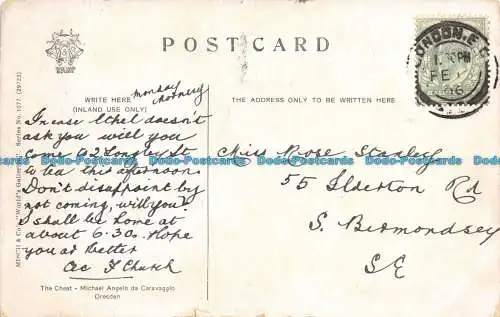 POST CARD
LONDON. E.C
FE
06
WRITE HERE
(INLAND USE ONLY)
Monday
morning
THE ADDRESS ONLY TO BE WRITTEN HERE
In case Ethel doesn't
ask you will you
come to 2 Longley St
to tea this afternoon
Don't disappoint by
not coming, will you?
I shall be home at
about 6.30. Hope
you are better
F Church
Miss Rose Stanley
55 Ilderton Rd
S. Bermondsey
S.E
The Cheat - Michael Angelo da Caravaggio
Dresden
Series No. 1077.
Dodo-Postcards Dodo-Postcards Dodo-Postcards Dodo-Postcards